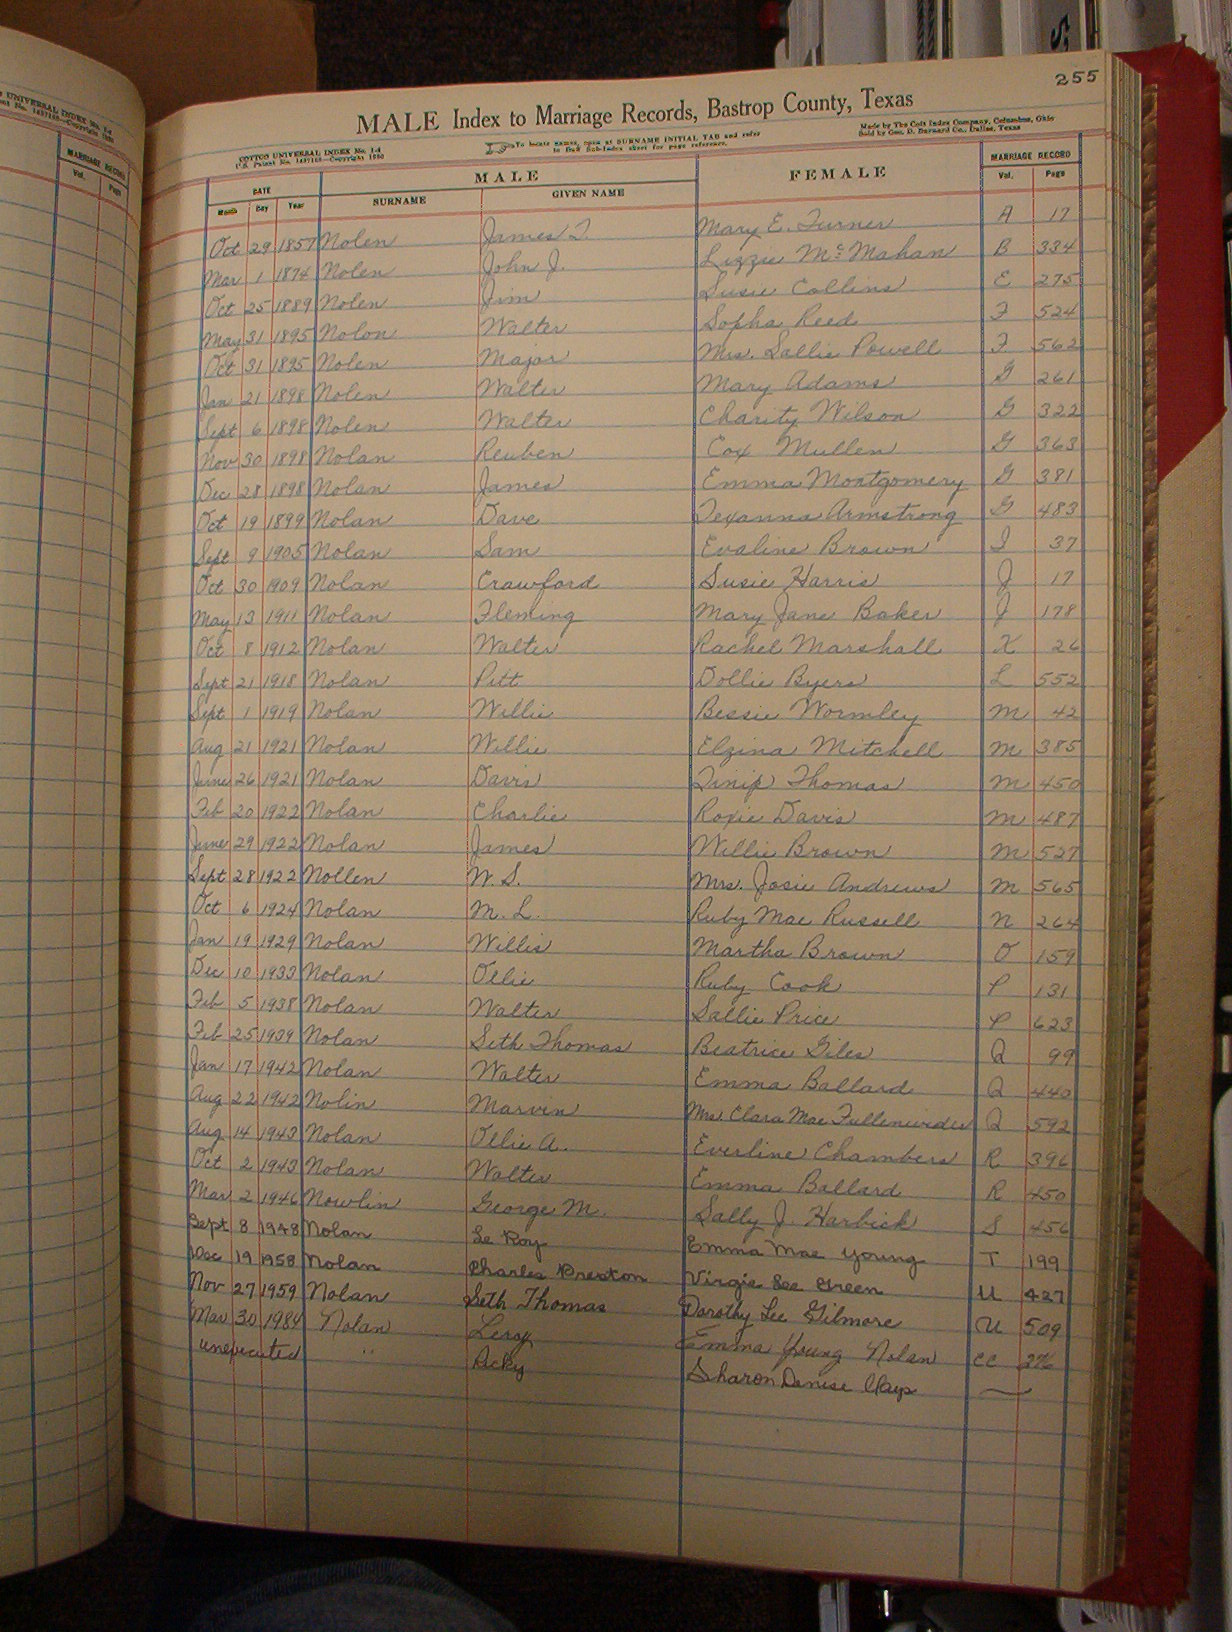 255
MALE Index to Marriage Records, Bastrop County, Texas
COTTCO UNIVERSAL INDEX No. 1-4
U.S. Patent No. Copyright 1930
To locate names, open at SURNAME INITIAL TAB and refer
to Sub-Index sheet for page reference.
Made by The Cott Index Company, Columbus, Ohio
Sold by Geo. D. Barnard Co., Dallas, Texas
UNIVERSAL INDEX No.
MARRIAGE RECORD
Vol. Page
DATE MALE FEMALE MARRIAGE RECORD
Month Day Year SURNAME GIVEN NAME Vol. Page
Oct 29 1857 Nolen James T. Mary E. Turner A 17
Mar 1 1874 Nolen John J. Lizzie McMahan B 334
Oct 25 1889 Nolen Jim Susie Collins E 275
May 31 1895 Nolon Walter Sopha Reed F 524
Oct 31 1895 Nolen Major Mrs. Sallie Powell F 562
Jan 21 1898 Nolen Walter Mary Adams G 261
Sept 6 1898 Nolen Walter Charity Wilson G 322
Nov 30 1898 Nolan Reuben Cox Mullen G 363
Dec 28 1898 Nolan James Emma Montgomery G 381
Oct 19 1899 Nolan Dave Texanna Armstrong G 483
Sept 9 1905 Nolan Sam Evaline Brown I 37
Oct 30 1909 Nolan Crawford Susie Harris J 17
May 13 1911 Nolan Fleming Mary Jane Baker J 178
Oct 8 1912 Nolan Walter Rachel Marshall K 26
Sept 21 1918 Nolan Pitt Dollie Byers L 552
Sept 1 1919 Nolan Willie Bessie Wormley M 42
Aug 21 1921 Nolan Willie Elzina Mitchell M 385
June 26 1921 Nolan Davis Thomas M 450
Feb 20 1922 Nolan Charlie Roxie Davis M 487
June 29 1922 Nolan James Willie Brown M 527
Sept 28 1922 Nollen W. S. Mrs. Josie Andrews M 565
Oct 6 1924 Nolan M. L. Ruby Mae Russell N 264
Jan 19 1929 Nolan Willis Martha Brown O 159
Dec 10 1933 Nolan Ollie Ruby Cook P 131
Feb 5 1938 Nolan Walter Sallie Price P 623
Feb 25 1939 Nolan Seth Thomas Beatrice Giles Q 99
Jan 17 1942 Nolan Walter Emma Ballard Q 440
Aug 22 1942 Nolin Marvin Mrs. Clara Mae Fullenwider Q 592
Aug 14 1943 Nolan Ollie A. Everline Chambers R 396
Oct 2 1943 Nolan Walter Emma Ballard R 450
Mar 2 1946 Nowlin George M. Sally J. Harbick S 456
Sept 8 1948 Nolan Le Roy Emma Mae Young T 199
Dec 19 1958 Nolan Charles Preston Virgie Lee Green U 427
Nov 27 1959 Nolan Seth Thomas Dorothy Lee Gilmore U 509
Mar 30 1984 Nolan Leroy Emma Young Nolan CC 276
unexecuted " Ricky Sharon Denise Mays